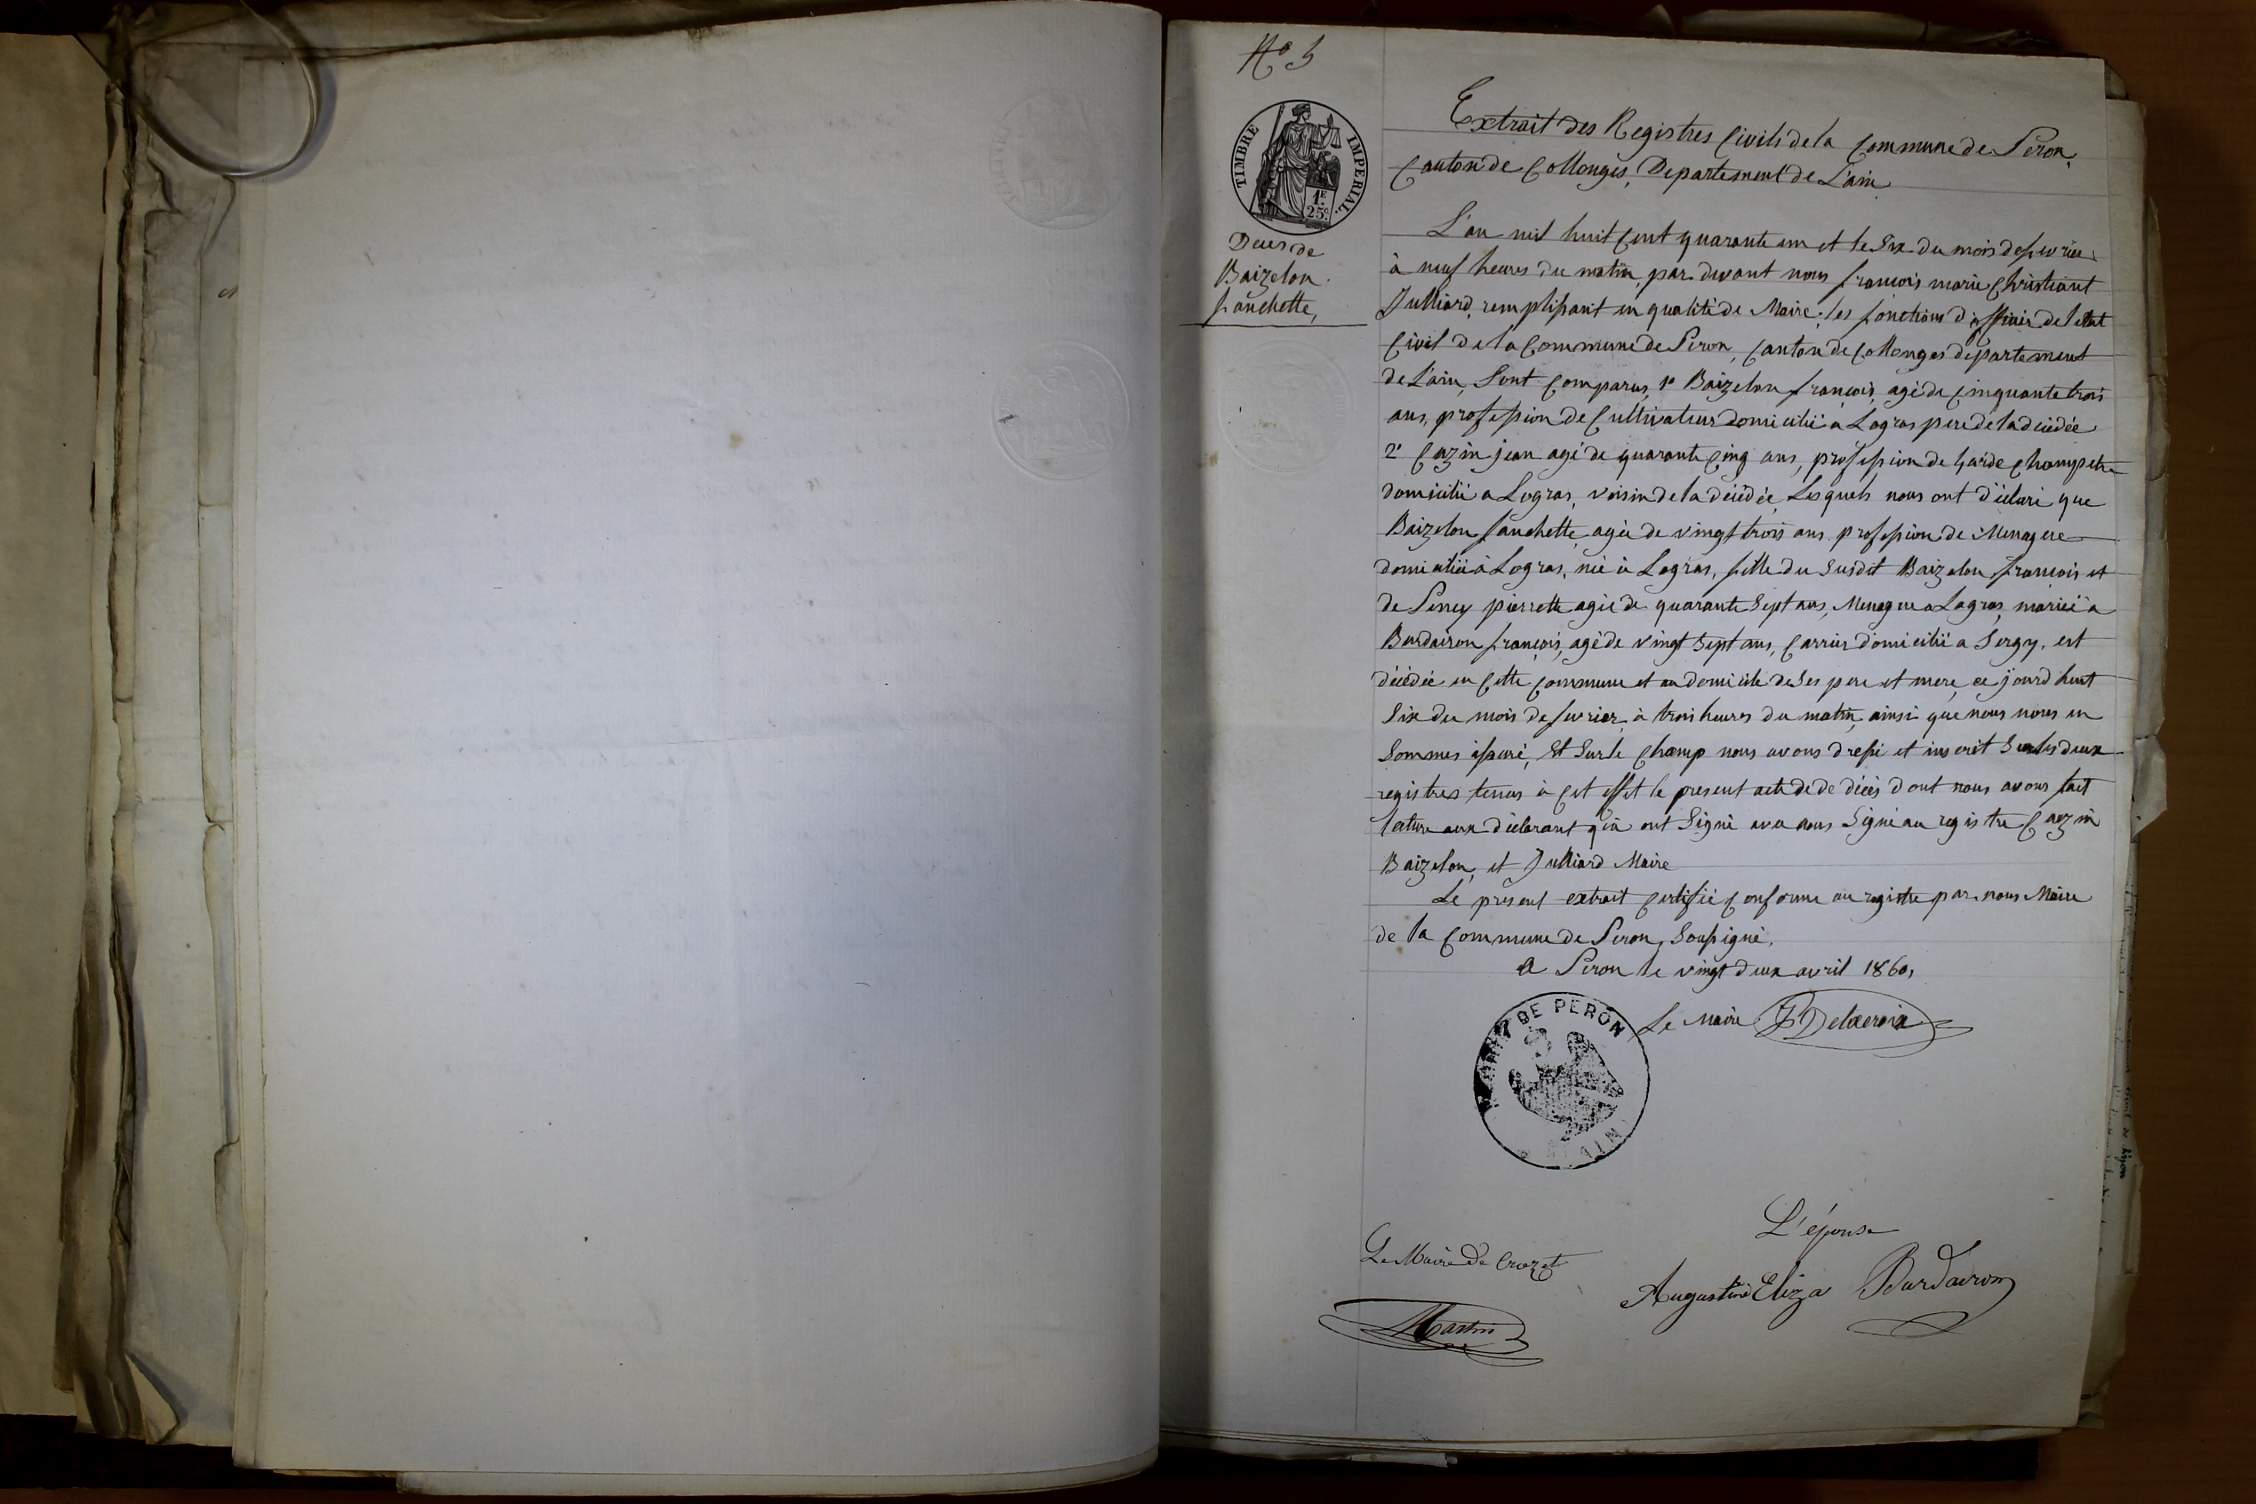 No 5
TIMBRE IMPERIAL.
1F.
25c.
Deces de
Baizelon
fanchette,
Extrait des Registres Civils de la Commune de Peron,
Canton de Collonges, Departement de L'ain
L'an mil huit cent quarante un et le six du mois de fevrier
à neuf heures du matin, par devant nous françois marie Christiant
Julliard, remplissant en qualité de Maire, les fonctions d'officier de letat
Civil de la Commune de Peron, Canton de Collonges departement
de L'ain, Sont Comparus, 1o Baizelon françois, agé de Cinquante trois
ans, profession de Cultivateur domicilié à Logras pere de la décédée
2o Cazin jean agé de quarante cinq ans, profession de Garde Champetre
domicilié a Logras, voisin de la décédée, Lesquels nous ont déclaré que
Baizelon fanchette, agée de vingt trois ans profession de Menagere
domiciliée à Logras, née à Logras, fille du Susdit Baizelon françois et
de Peney pierrette agée de quarante Sept ans, Menagere a Logras, mariée a
Burdairon françois, agé de vingt Sept ans, Carrier domicilié a Sergy, est
décédée en Cette Commune et au domicile de Ses pere et mere, ce jourd huit
Six du mois de fevrier, à trois heures du matin, ainsi que nous nous en
Sommes assuré, Et Sur le Champ nous avons dressé et inscrit Sur les deux
registres tenus à Cet effet le present acte de de décès dont nous avons fait
lecture aux déclarant qui ont Signé avec nous Signé au registre Cazin
Baizelon, et Julliard Maire
Le présent extrait Certifié Conforme au registre par nous Maire
de la Commune de Peron, Soussigné,
A Peron le vingt deux avril 1860,
Le Maire Delacroix
DE PERON
AIN
L'épouse
Le Maire de Crozet
Augustine Eliza Burdairon
Martin